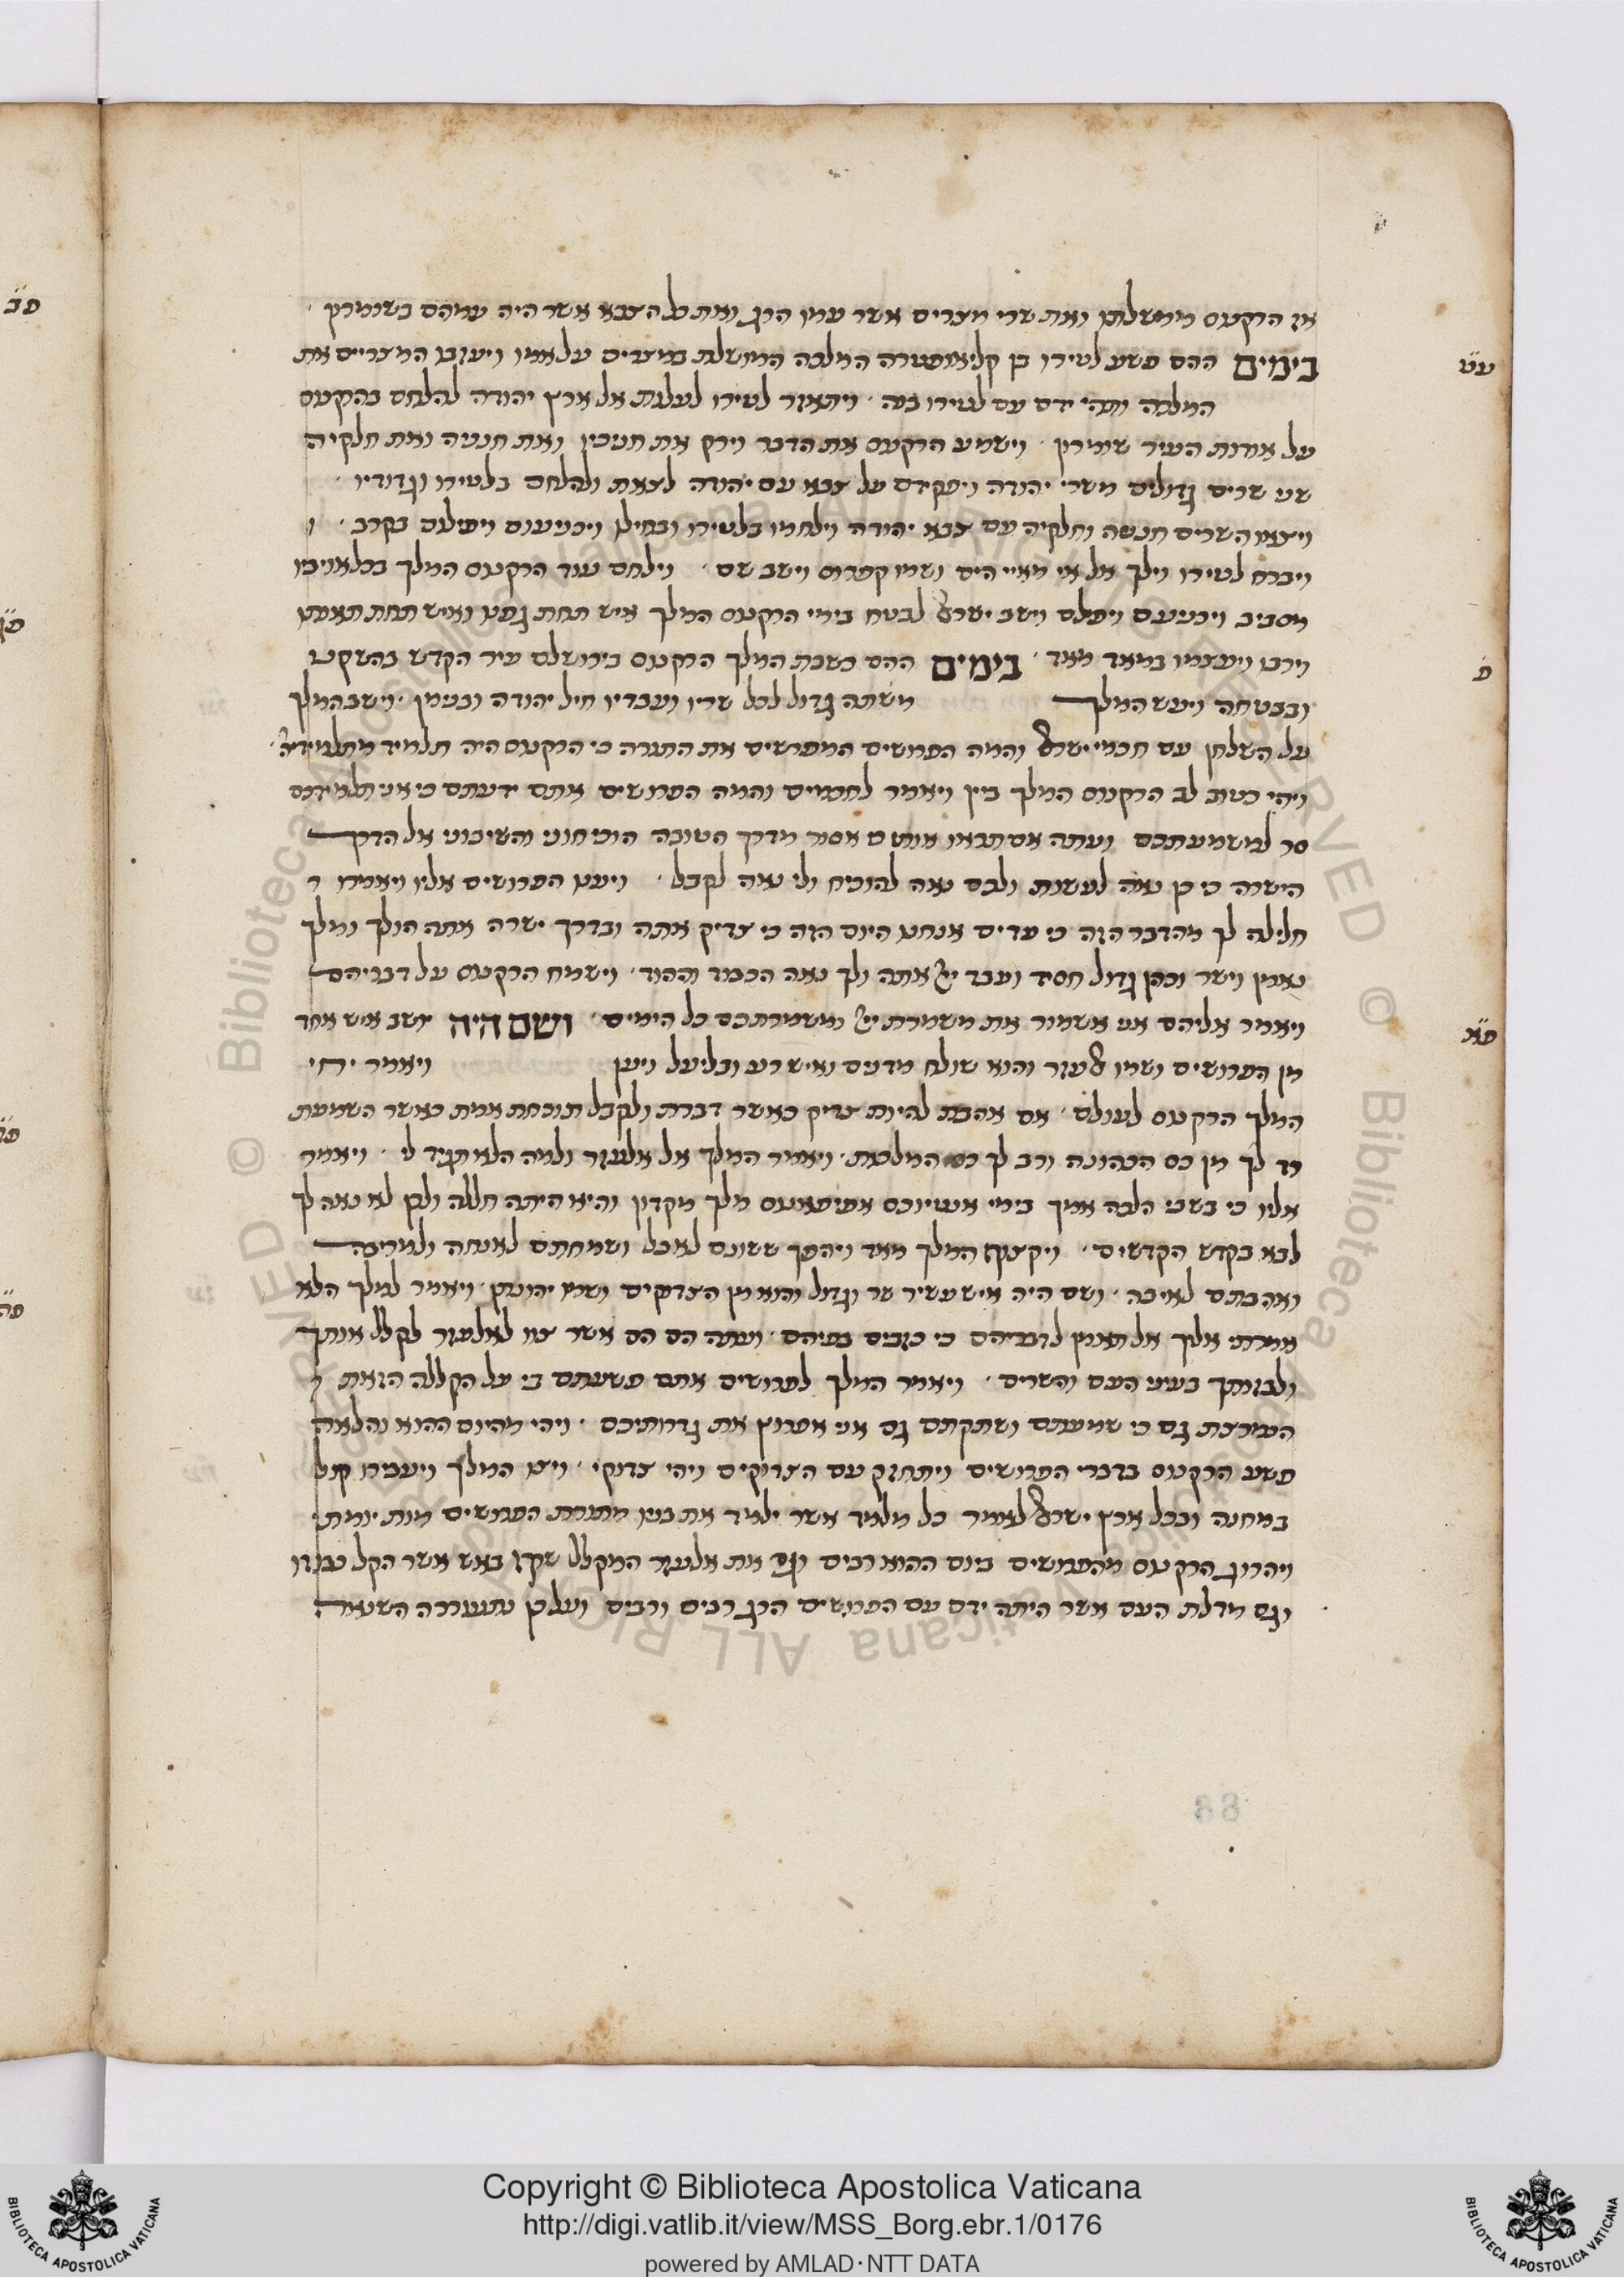 אז הרקנוס ממשלתו ואת שרי מצרים אשר עמו הרג ואת כל הצבא אשר היה עמהם בשומרון
עט
בימים ההם פשע לטירו בן קליאופטרה המלכה המושלת במצרים על אמו ויעזבו המצריים את
המלכה ותהי ידם עם לטירו בנה ויתאזר לטירו לעלות אל ארץ יהודה להלחם בהקנוס
על אודות העיר שומרון וישמע הרקנוס את הדבר וירק את חניכיו ואת חנניה ואת חלקיה
שני שרים גדולים משרי יהודה ויפקידם על צבא עם יהודה לצאת ולהלחם בלטירו וגדודיו
ויצאו השרים חנניה וחלקיה עם צבא יהודה וילחמו בלטירו ובחילו ויכניעום ויפילם בקרב ו
ויברח לטירו וילך אל אי מאיי הים ושמו קפרוס וישב שם וילחם עוד הרקנוס המלך בכל אויביו
מסביב ויכניעם ויפילם וישב ישראל לבטח בימי הרקנוס המלך איש תחת גפנו ואיש תחת תאנתו
פ
וירבו ויעצמו במאד מאד בימים ההם כשבת המלך הרקנוס בירושלם עיר הקדש בהשקט
ובבטחה ויעש המלך משתה גדול לכל שריו ועבדיו חיל יהודה ובנימן וישב המלך
על השלחן עם חכמי ישראל והמה הפרושים המפרשים את התורה כי הרקנוס היה תלמיד מתלמידיה
ויהי כטוב לב הרקנוס המלך ביין ויאמר לחכמים והמה הפרושים אתם ידעתם כי אני תלמידכם
סר למשמעתכם ועתה אם תראו אותי אסור מדרך הטובה הוכיחוני והשיבוני אל הדרך
הישרה כי כן נאה לעשות ולכם נאה להוכיח ולי נאה לקבל ויענו הפרושים אליו ויאמרו ר
חלילה לך מהדבר הזה כי עדים אנחנו היום הזה כי צדיק אתה ובדרך ישרה אתה הולך ומלך
נאמן וישר וכהן גדול חסיד ועבד ייי אתה ולך נאה הכבוד וההוד וישמח הרקנוס על דבריהם
פא
ויאמר אליהם אני אשמור את משמרת ייי ומשמרתכם כל הימים ושם היה יושב איש אחד
מן הפרושים ושמו אלעזר והוא שולח מדנים ואיש רע ובליעל ויען ויאמר יחי
המלך הרקנוס לעולם אם אהבת להיות צדיק כאשר דברת ולקבל תוכחת אמת כאשר השמעת
רד לך מן כס הכהונה ורב לך כס המלכות ויאמר המלך אל אלעזר ולמה הלא תגיד לי ויאמר
אליו כי בשבי הלכה אמך בימי אנטיוכס אפיפאנוס מלך מקדון והיא היתה חללה ולכן לא נאה לך
לבא בקדש הקדשים ויקצוף המלך מאד ויהפך ששונם לאבל ושמחתם לאנחה ולמריבה
ואהבתם לאיבה ושם היה איש עשיר שר וגדול והוא מן הצדוקים ושמו יהונתן ויאמר למלך הלא
אמרתי אליך אל תאמין לדבריהם כי כוזבים בפיהם ועתה הם הם אשר צוו לאלעזר לקלל אותך
ולבזותך בעיני העם והשרים ויאמר המלך לפרושים אתם פשעתם בי על הקללה הזאת
הנמרצת גם כי שמעתם ושתקתם גם אני אפרוץ את גדרותיכם ויהי מהיום ההוא והלאה
פשע הרקנוס בדברי הפרושים ויתחזק עם הצדוקים ויהי צדוקי ויצו המלך ויעבירו קול
במחנה ובכל ארץ ישראל לאמר כל מלמד אשר ילמד את בניו מתורת הפרושים מות יומת
ויהרוג הרקנוס מהפרושים ביום ההוא רבים וגם את אלעזר המקלל שקץ באש אשר הקל בבזיון
וגם מדלת העם אשר היתה ידם עם הפרושים הרג רבים ורבים ועל כן נתעוררה השנאה
68
פב
Copyright © Biblioteca Apostolica Vaticana
http://digi.vatlib.it/view/MSS_Borg.ebr.1/0176
powered by AMLAD·NTT DATA
BIBLIOTECA APOSTOLICA VATICANA
BIBLIOTECA APOSTOLICA VATICANA